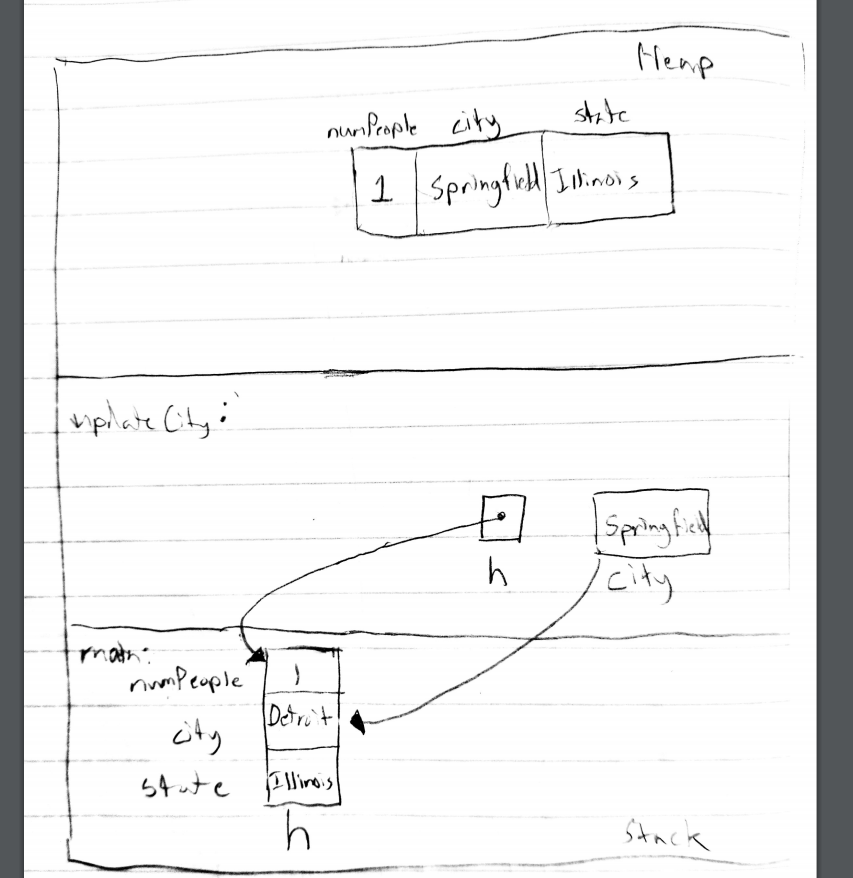 Heap
numPeople city state
1 Springfield Illinois
updateCity:
Springfield
h city
main:
numPeople 1
city Detroit
state Illinois
h
Stack